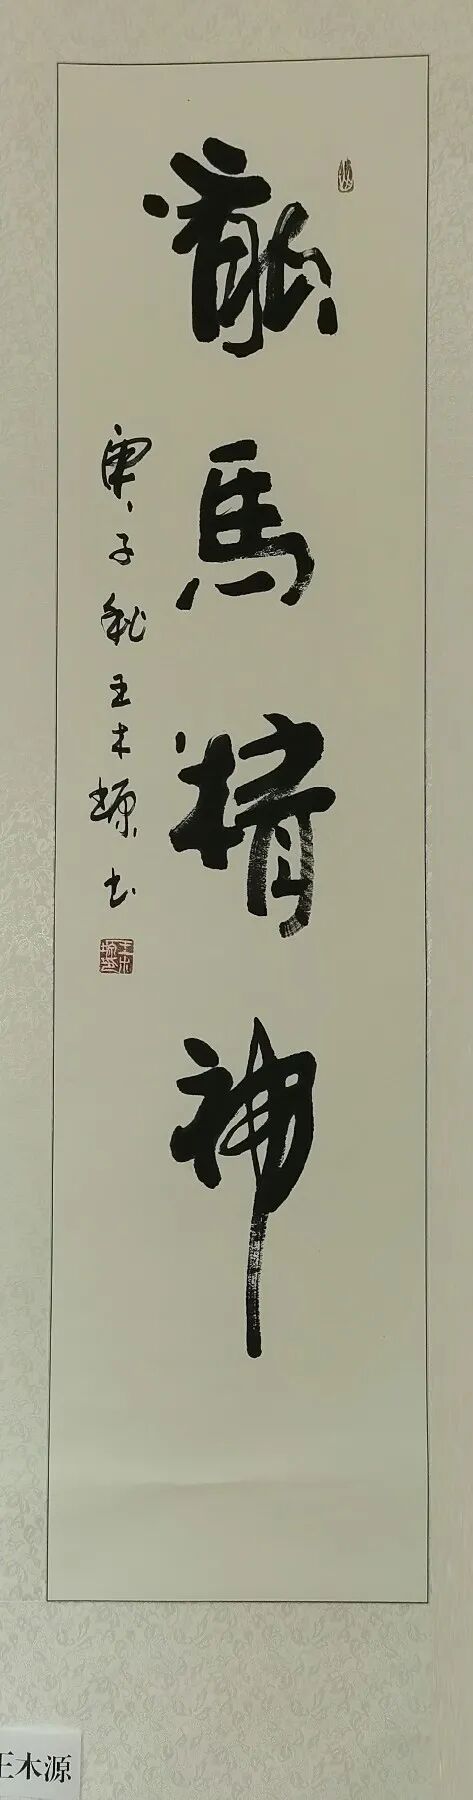 龍馬精神
庚子秋王木源书
王木源